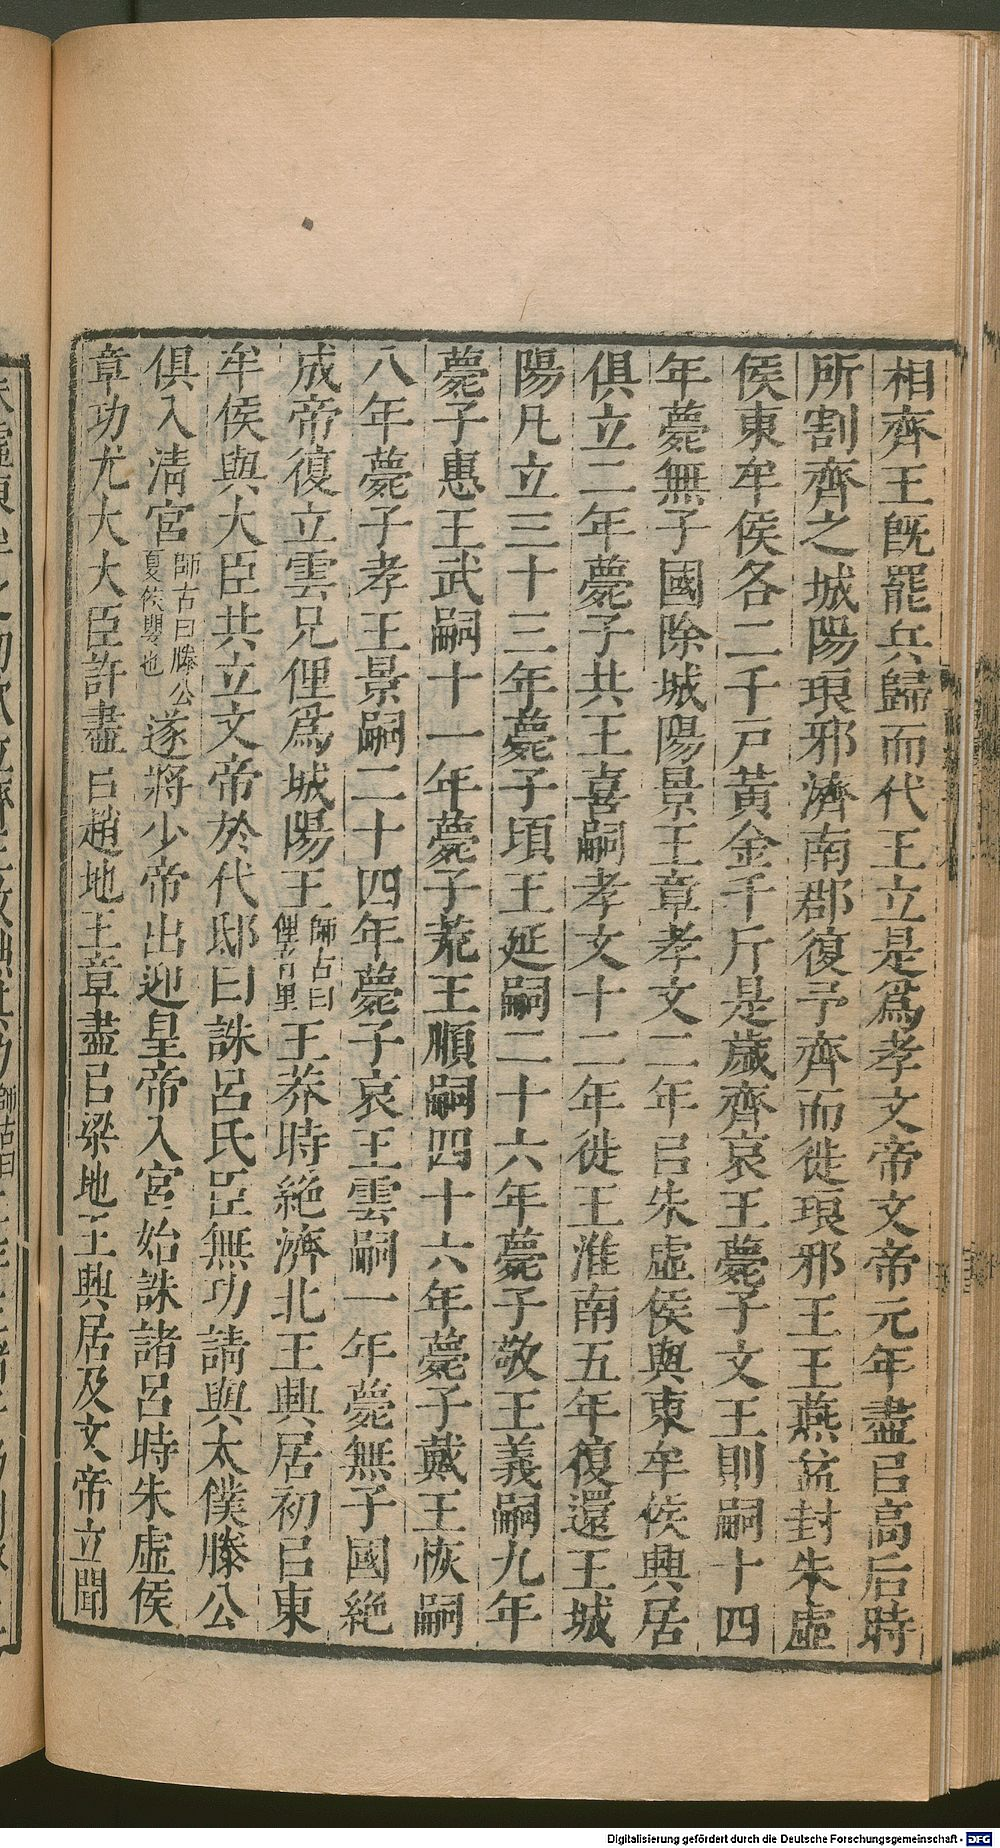 相齊王旣罷兵歸而代王立是爲孝文帝文帝元年盡㠯高后時
所割齊之城陽琅邪濟南郡復予齊而徙琅邪王王燕益封朱虛
侯東牟侯各二千戸黃金千斤是歲齊哀王薨子文王則嗣十四
年薨無子國除城陽景王章孝文二年㠯朱虛侯與東牟侯興居
俱立二年薨子共王喜嗣孝文十二年徙王淮南五年復還王城
陽凡立三十三年薨子頃王延嗣二十六年薨子敬王義嗣九年
薨子惠王武嗣十一年薨子荒王順嗣四十六年薨子戴王恢嗣
八年薨子孝王景嗣二十四年薨子哀王雲嗣一年薨無子國絕
成帝復立雲兄俚爲城陽王師古曰俚音里王莽時絕濟北王興居初㠯東
牟侯與大臣共立文帝於代邸曰誅呂氏臣無功請與太僕滕公
俱入清宮師古曰滕公夏侯嬰也遂將少帝出迎皇帝入宮始誅諸呂時朱虛侯
章功尤大大臣許盡㠯趙地王章盡㠯梁地王興居及文帝立聞
Digitalisierung gefördert durch die Deutsche Forschungsgemeinschaft - DFG